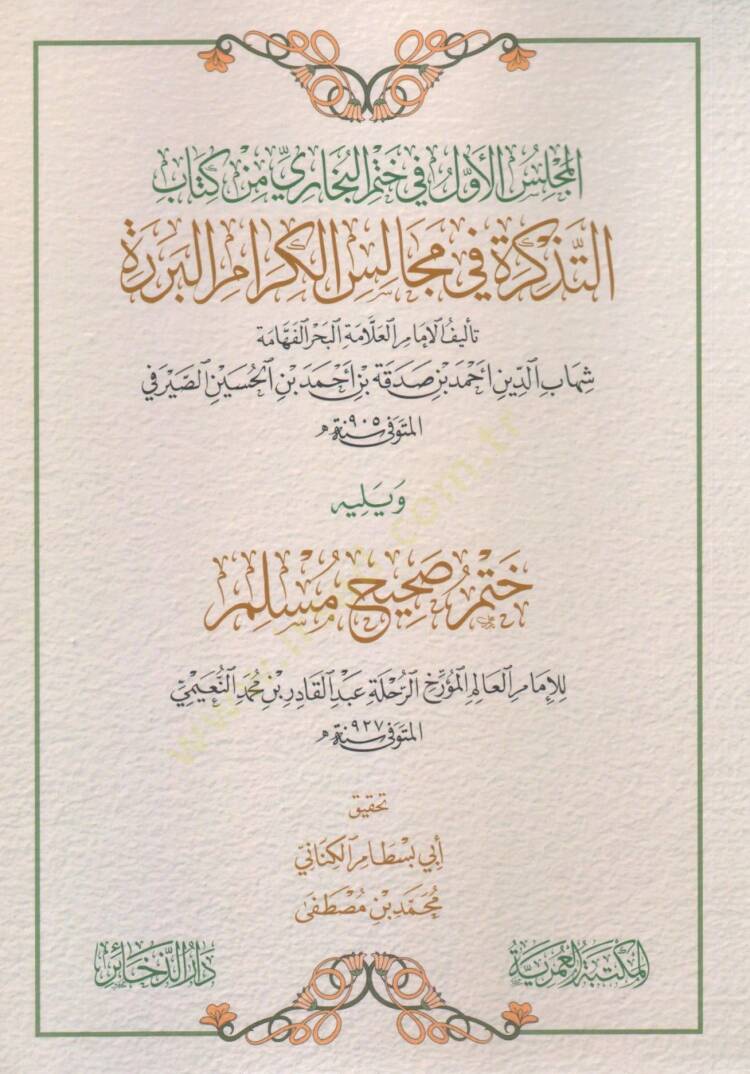 المَجْلِسُ الأَوَّلُ فِي خَتْمِ البُخَارِيِّ مِنْ كِتَابِ
التَّذْكِرَة فِي مَجَالِسِ الكِرَامِ البَرَرَة
تأليفُ الإمامِ العَلَّامَةِ البَحْرِ الفَهَّامَة
شِهَابِ الدِّينِ أَحْمَدَ بْنِ صَدَقَةَ بْنِ أَحْمَدَ بْنِ الحُسَيْنِ الصَّيْرَفِي
المتوفى سنة ٩٠٥هـ
وَيَلِيهِ
خَتْمُ صَحِيحِ مُسْلِمٍ
لِلإِمَامِ العَالِمِ المُؤَرِّخِ الرُّحْلَةِ عَبْدِ القَادِرِ بْنِ مُحَمَّدِ النُّعَيْمِيِّ
المتوفى سنة ٩٢٧هـ
تحقيق
أبي بسطام الكنانيّ
مُحَمَّد بْنِ مُصْطَفَى
المكتبة العُمَرِيَّة
دَارُ الذَّخَائِرِ